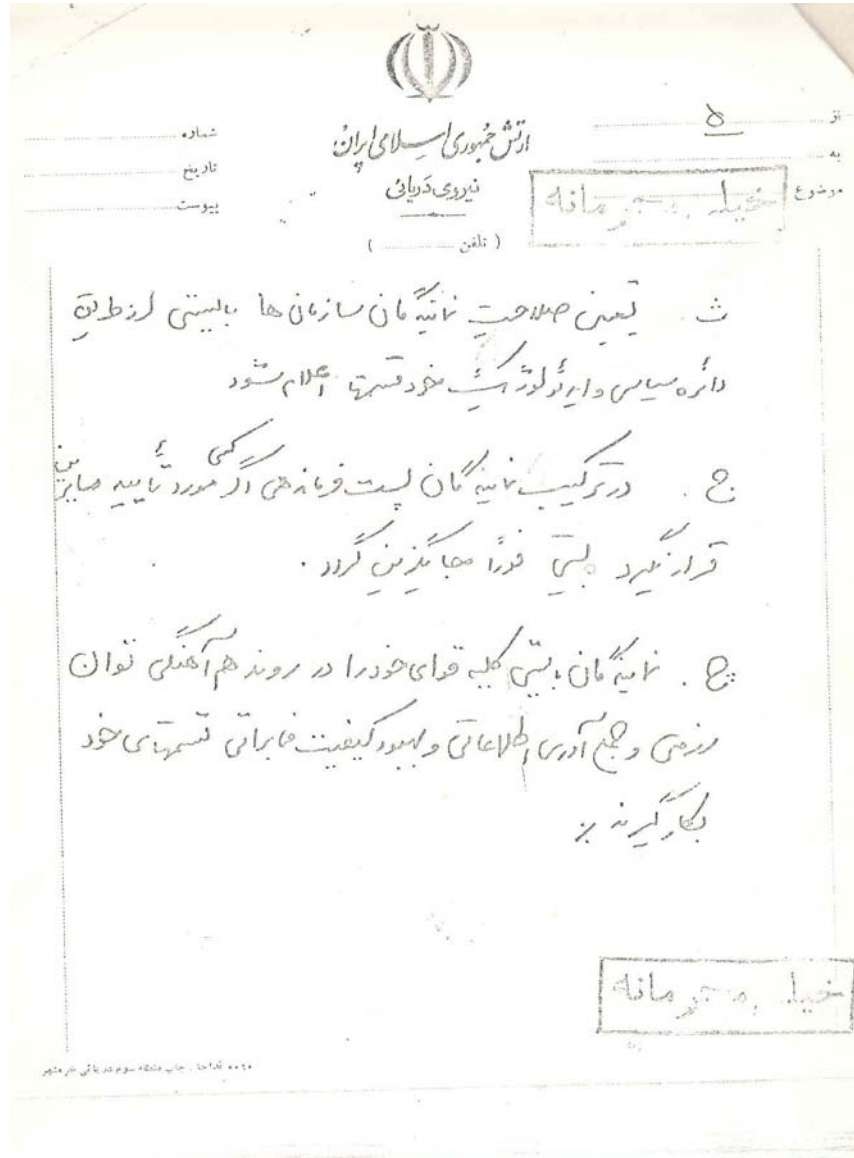 ارتش جمهوری اسلامی ایران
نیروی دریائی
( تلفن .......... )
از ۵
به
موضوع
خیلی محرمانه
شماره
تاریخ
پیوست
ث . تعیین صلاحیت نمایندگان سازمان ها بایستی از طریق
دائره سیاسی و ایدئولوژیک خود قسمتها اعلام شود
ج . در ترکیب نمایندگان پست فرماندهی اگر کسی مورد تأیید سایرین
قرار نگیرد بایستی فوراً جایگزین گردد .
چ . نمایندگان بایستی کلیه قوای خود را در روند هم آهنگی توان
رزمی و جمع آوری اطلاعاتی و بهبود کیفیت مخابراتی قسمتهای خود
بکار گیرند
خیلی محرمانه
چاپ منطقه سوم دریائی خرمشهر